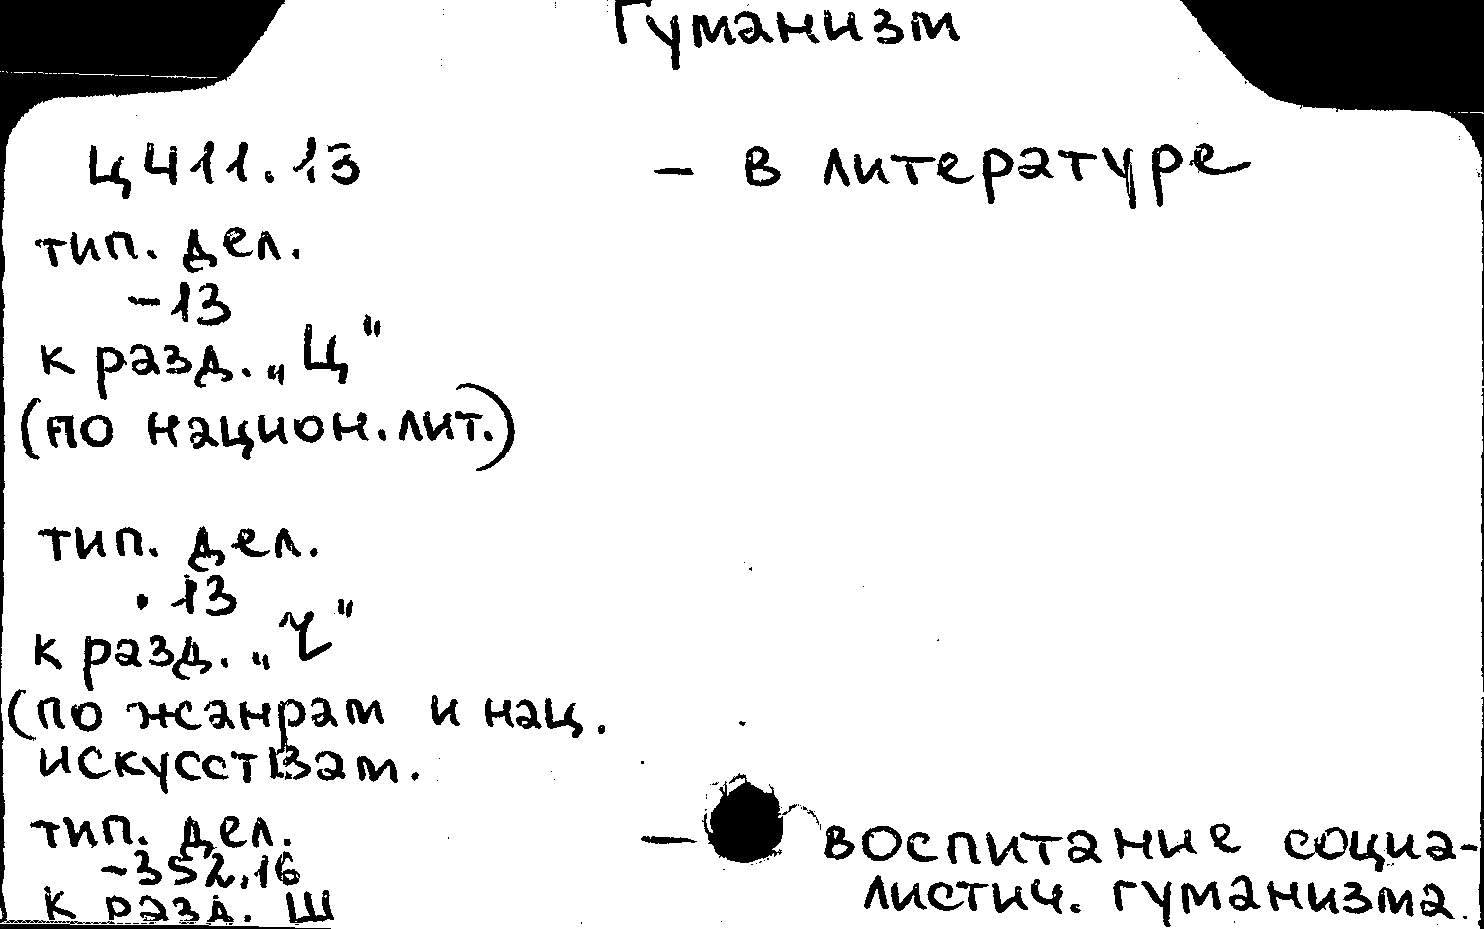 Гуманизм
Ц411.13 – в литературе
тип. дел.
–13
к разд. „Ц"
(по национ.лит.)
тип. дел.
.13
к разд. „Щ"
(по жанрам и нац.
искусствам.
тип. дел. – воспитание социа-
–352,16 листич. гуманизма.
к разд. Ш